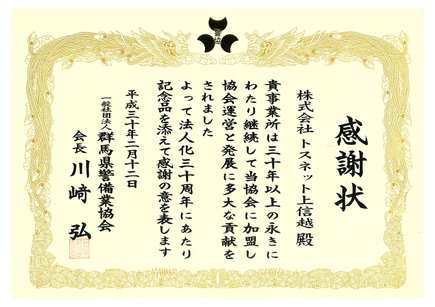 感謝状
株式会社 トスネット上信越 殿
貴事業所は三十年以上の永きに
わたり継続して当協会に加盟し
協会運営と発展に多大な貢献を
されました
よって法人化三十周年にあたり
記念品を添えて感謝の意を表します
平成三十年二月十二日
一般社団法人 群馬県警備業協会
会長 川﨑 弘